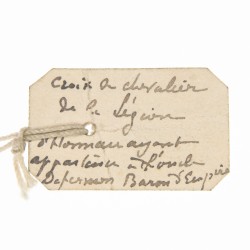 Croix de chevalier
de la Légion
d'Honneur ayant
appartenu à l'oncle
Defermon Baron d'Empire